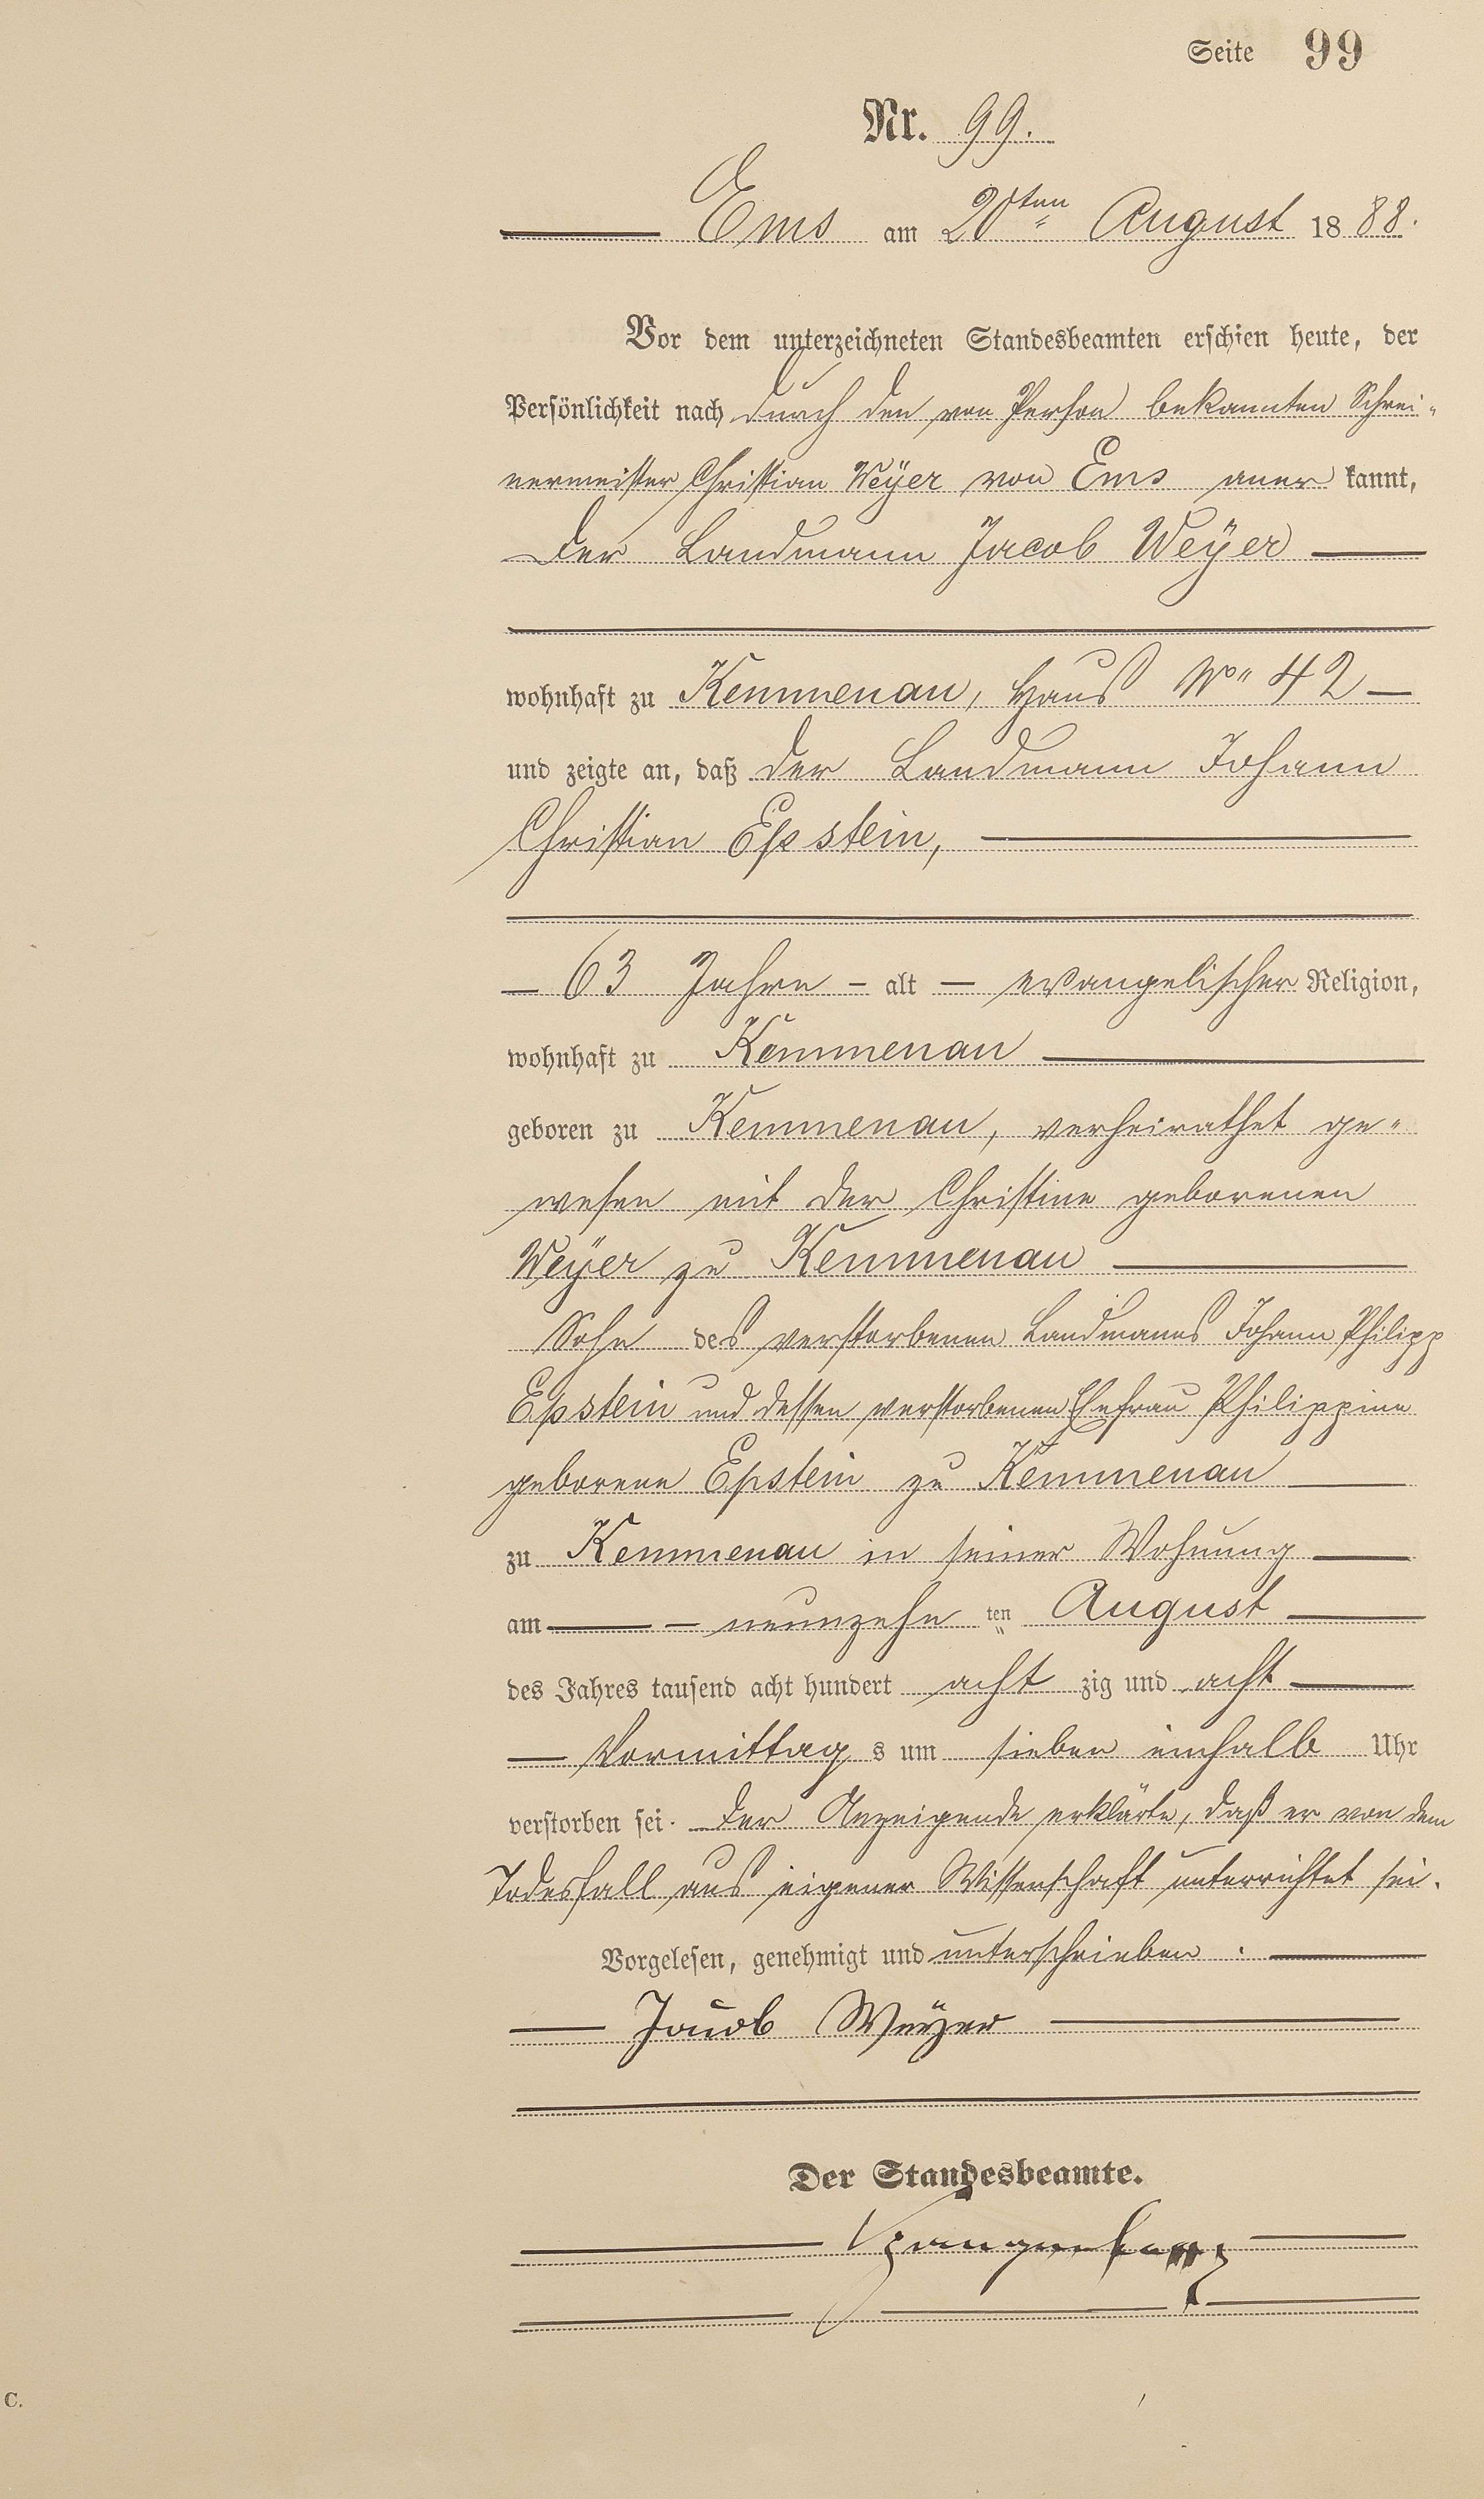 Seite 99
Nr. 99.
Ems am 20ten August 1888.
Vor dem unterzeichneten Standesbeamten erschien heute, der
Persönlichkeit nach durch den von Person bekannten Schrei-
nermeister Christian Weÿer von Ems aner kannt,
der Landmann Jacob Weÿer
wohnhaft zu Kemmenau, Haus No 42
und zeigte an, daß der Landmann Johann
Christian Epstein,
63 Jahre alt evangelischer Religion,
wohnhaft zu Kemmenau
geboren zu Kemmenau, verheirathet ge-
wesen mit der Christine geborenen
Weÿer zu Kemmenau
Sohn des verstorbenen Landmanns Johann Philipp
Epstein und dessen verstorbenen Ehefrau Philippine
geborene Epstein zu Kemmenau
zu Kemmenau in seiner Wohnung
am neunzehn ten August
des Jahres tausend acht hundert acht zig und acht
Vormittag s um sieben einhalb Uhr
verstorben sei. Der Anzeigende erklärte, daß er von dem
Todesfall aus eigener Wissenschaft unterrichtet sei.
Vorgelesen, genehmigt und unterschrieben.
Jacob Weÿer
Der Standesbeamte.
C.